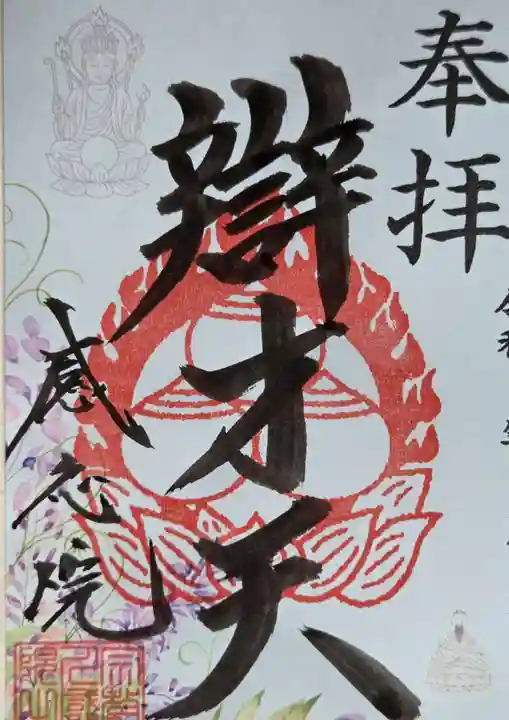 奉拝
令和
辯才天
感応院